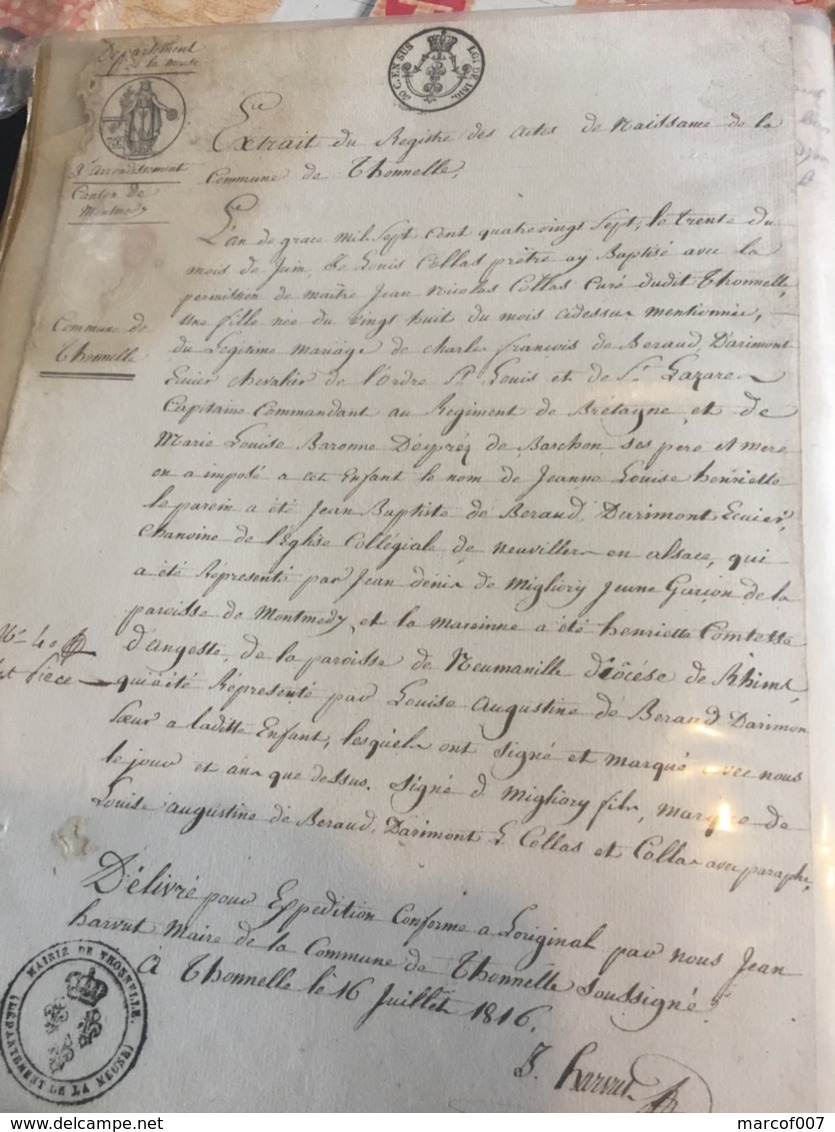 Departement
de la meuse
3e arrondissement
Canton de
Montmedy
Commune de
Thonnelle
30 C. EN SUS
LOI DE 1816.
Extrait du Registre des actes de Naissance de la
Commune de Thonnelle,
L'an de grace mil Sept Cent quatrevingt Sept, le trente du
mois de Juin, Je Louis Collas prêtre ay Baptisé avec la
permission de maître Jean Nicolas Collas Curé dudit Thonnelle,
une fille née du vingt huit du mois adessus mentionnée,
du Legitime mariage de Charles François de Beraud, Darimont
Ecuier Chevalier de l'ordre St Louis et de St Lazare
Capitaine Commandant au Regiment de Bretagne, et de
Marie Louise Baronne Després de Barchon ses pere et mere
on a imposé a cet Enfant le nom de Jeanne Louise henriette
le parein a été Jean Baptiste de Beraud, Darimont Ecuier,
Chanoine de l'Eglise Collégiale de Neuviller en alsace, qui
a été Réprésenté par Jean denis de Migliory Jeune Garçon de la
paroisse de Montmedy, et la mareinne a été henriette Comtesse
d'angeste, de la paroisse de Neumanille Diôcése de Rhims,
qui a été Réprésenté par Louise Augustine de Beraud Darimon
Sœur a laditte Enfant, lesquels ont signé et marqué avec nous
le jour et an que dessus. Signé d Migliory fils, marque de
Louise augustine de Beraud, Darimont L. Collas et Collas avec paraphe,
No 40
1st Piéce
Délivré pour Expedition Conforme a Loriginal par nous Jean
harvut Maire de la Commune de Thonnelle Soussigné
À Thonnelle le 16 Juillet 1816.
J. harvut
MAIRIE DE THONNELLE.
(DÉPARTEMENT DE LA MEUSE)
marcof007